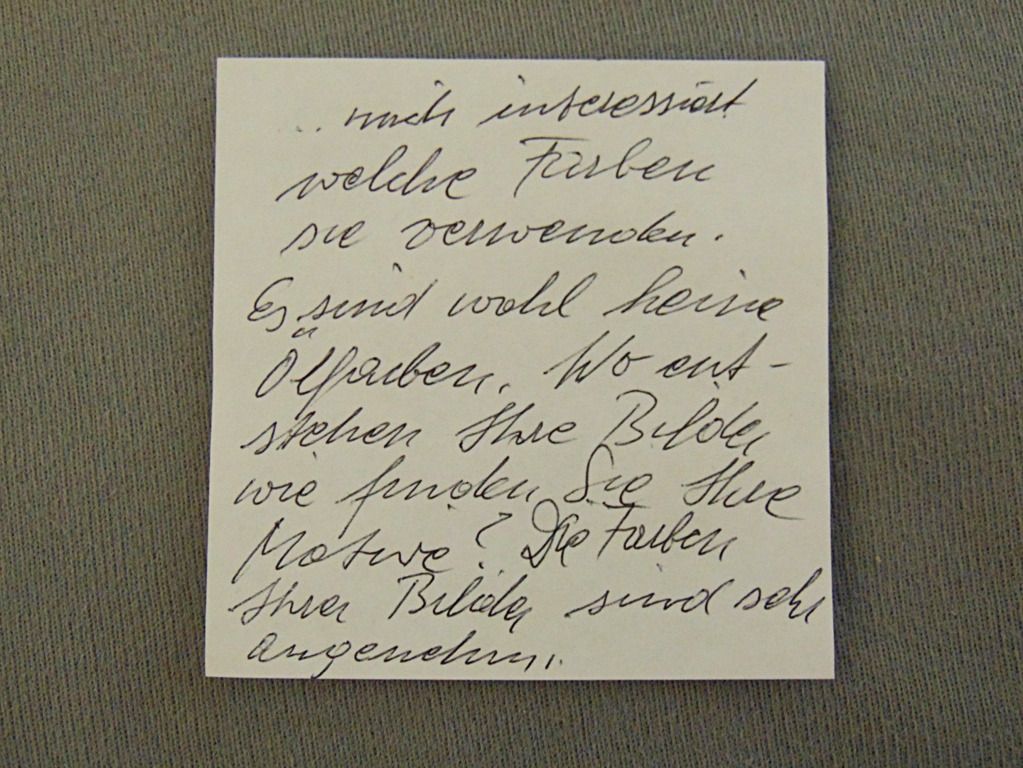 .. mich interessiert
welche Farben
sie verwenden.
Es sind wohl keine
Ölfarben. Wo ent-
stehen Ihre Bilder
wie finden Sie Ihre
Motive? Die Farben
Ihrer Bilder sind sehr
angenehm.